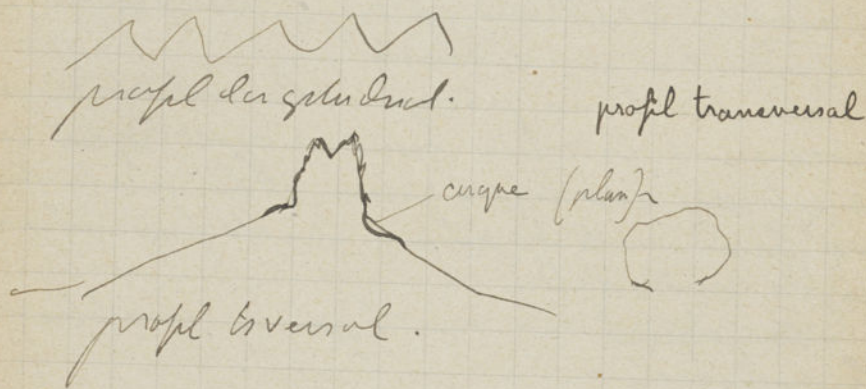 profil longitudinal.
profil transversal
cirque (plan)
profil tsversal.